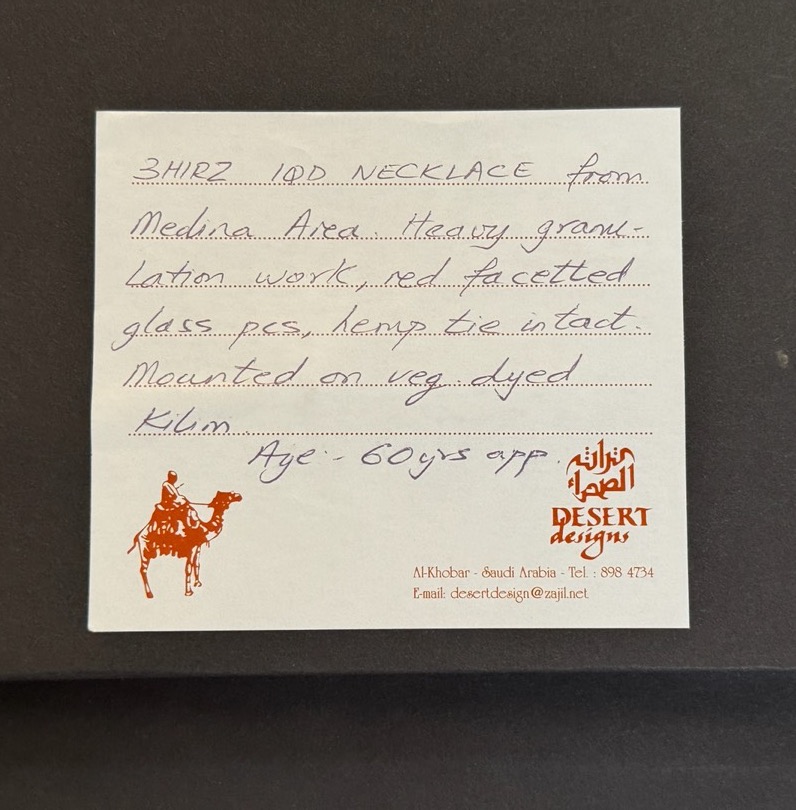 3HIRZ IQD NECKLACE from
Medina Area. Heavy granu-
lation work, red facetted
glass pcs, hemp tie intact.
Mounted on veg. dyed
Kilim.
Age - 60yrs app.
DESERT
designs
Al-Khobar - Saudi Arabia - Tel. : 898 4734
E-mail: desertdesign@zajil.net